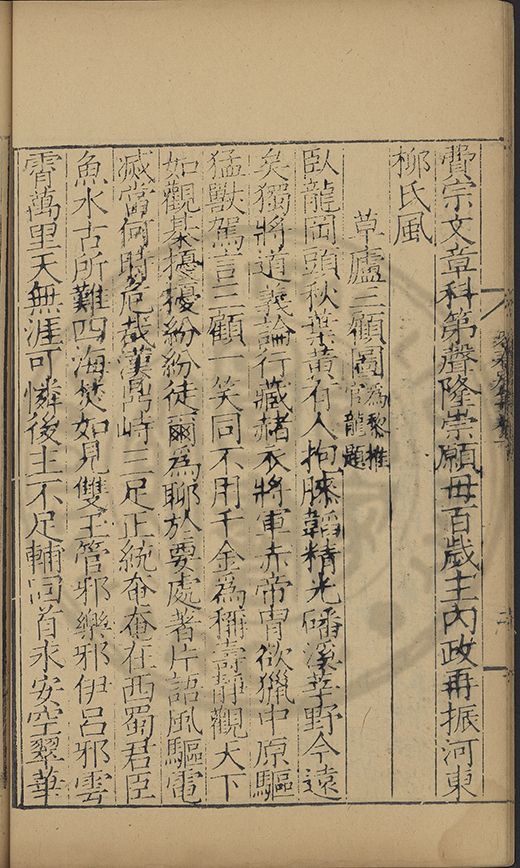 費宗文章科第聲隆崇願毋百歲主內政再振河東
柳氏風
草廬三顧圖為黎推官龍題
臥龍岡頭秋葉黃有人抱膝韜精光磻溪莘野今遠
矣獨將道義論行藏赭衣將軍赤帝胄欲獵中原驅
猛獸駕言三顧一笑同不用千金為稱壽靜觀天下
如觀棊擾擾紛紛徒爾為聊於要處著片語風驅電
滅當何時危哉漢鼎峙三足正統奄奄在西蜀君臣
魚水古所難四海焚如見雙玉管邪樂邪伊呂邪雲
霄萬里天無涯可憐後主不足輔回首永安空翠華